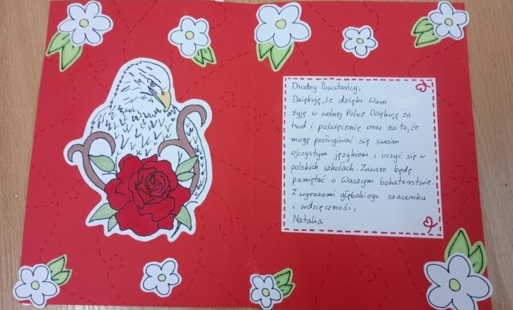 Drodzy Powstańcy,
Dziękuję, że dzięki Wam
żyję w wolnej Polsce Dziękuję za
trud i poświęcenie oraz za to, że
mogę posługiwać się swoim
ojczystym językiem i uczyć się w
polskich szkołach Zawsze będę
pamiętać o Waszym bohaterstwie.
Z wyrazami głębokiego szacunku
i wdzięczności,
Natalia